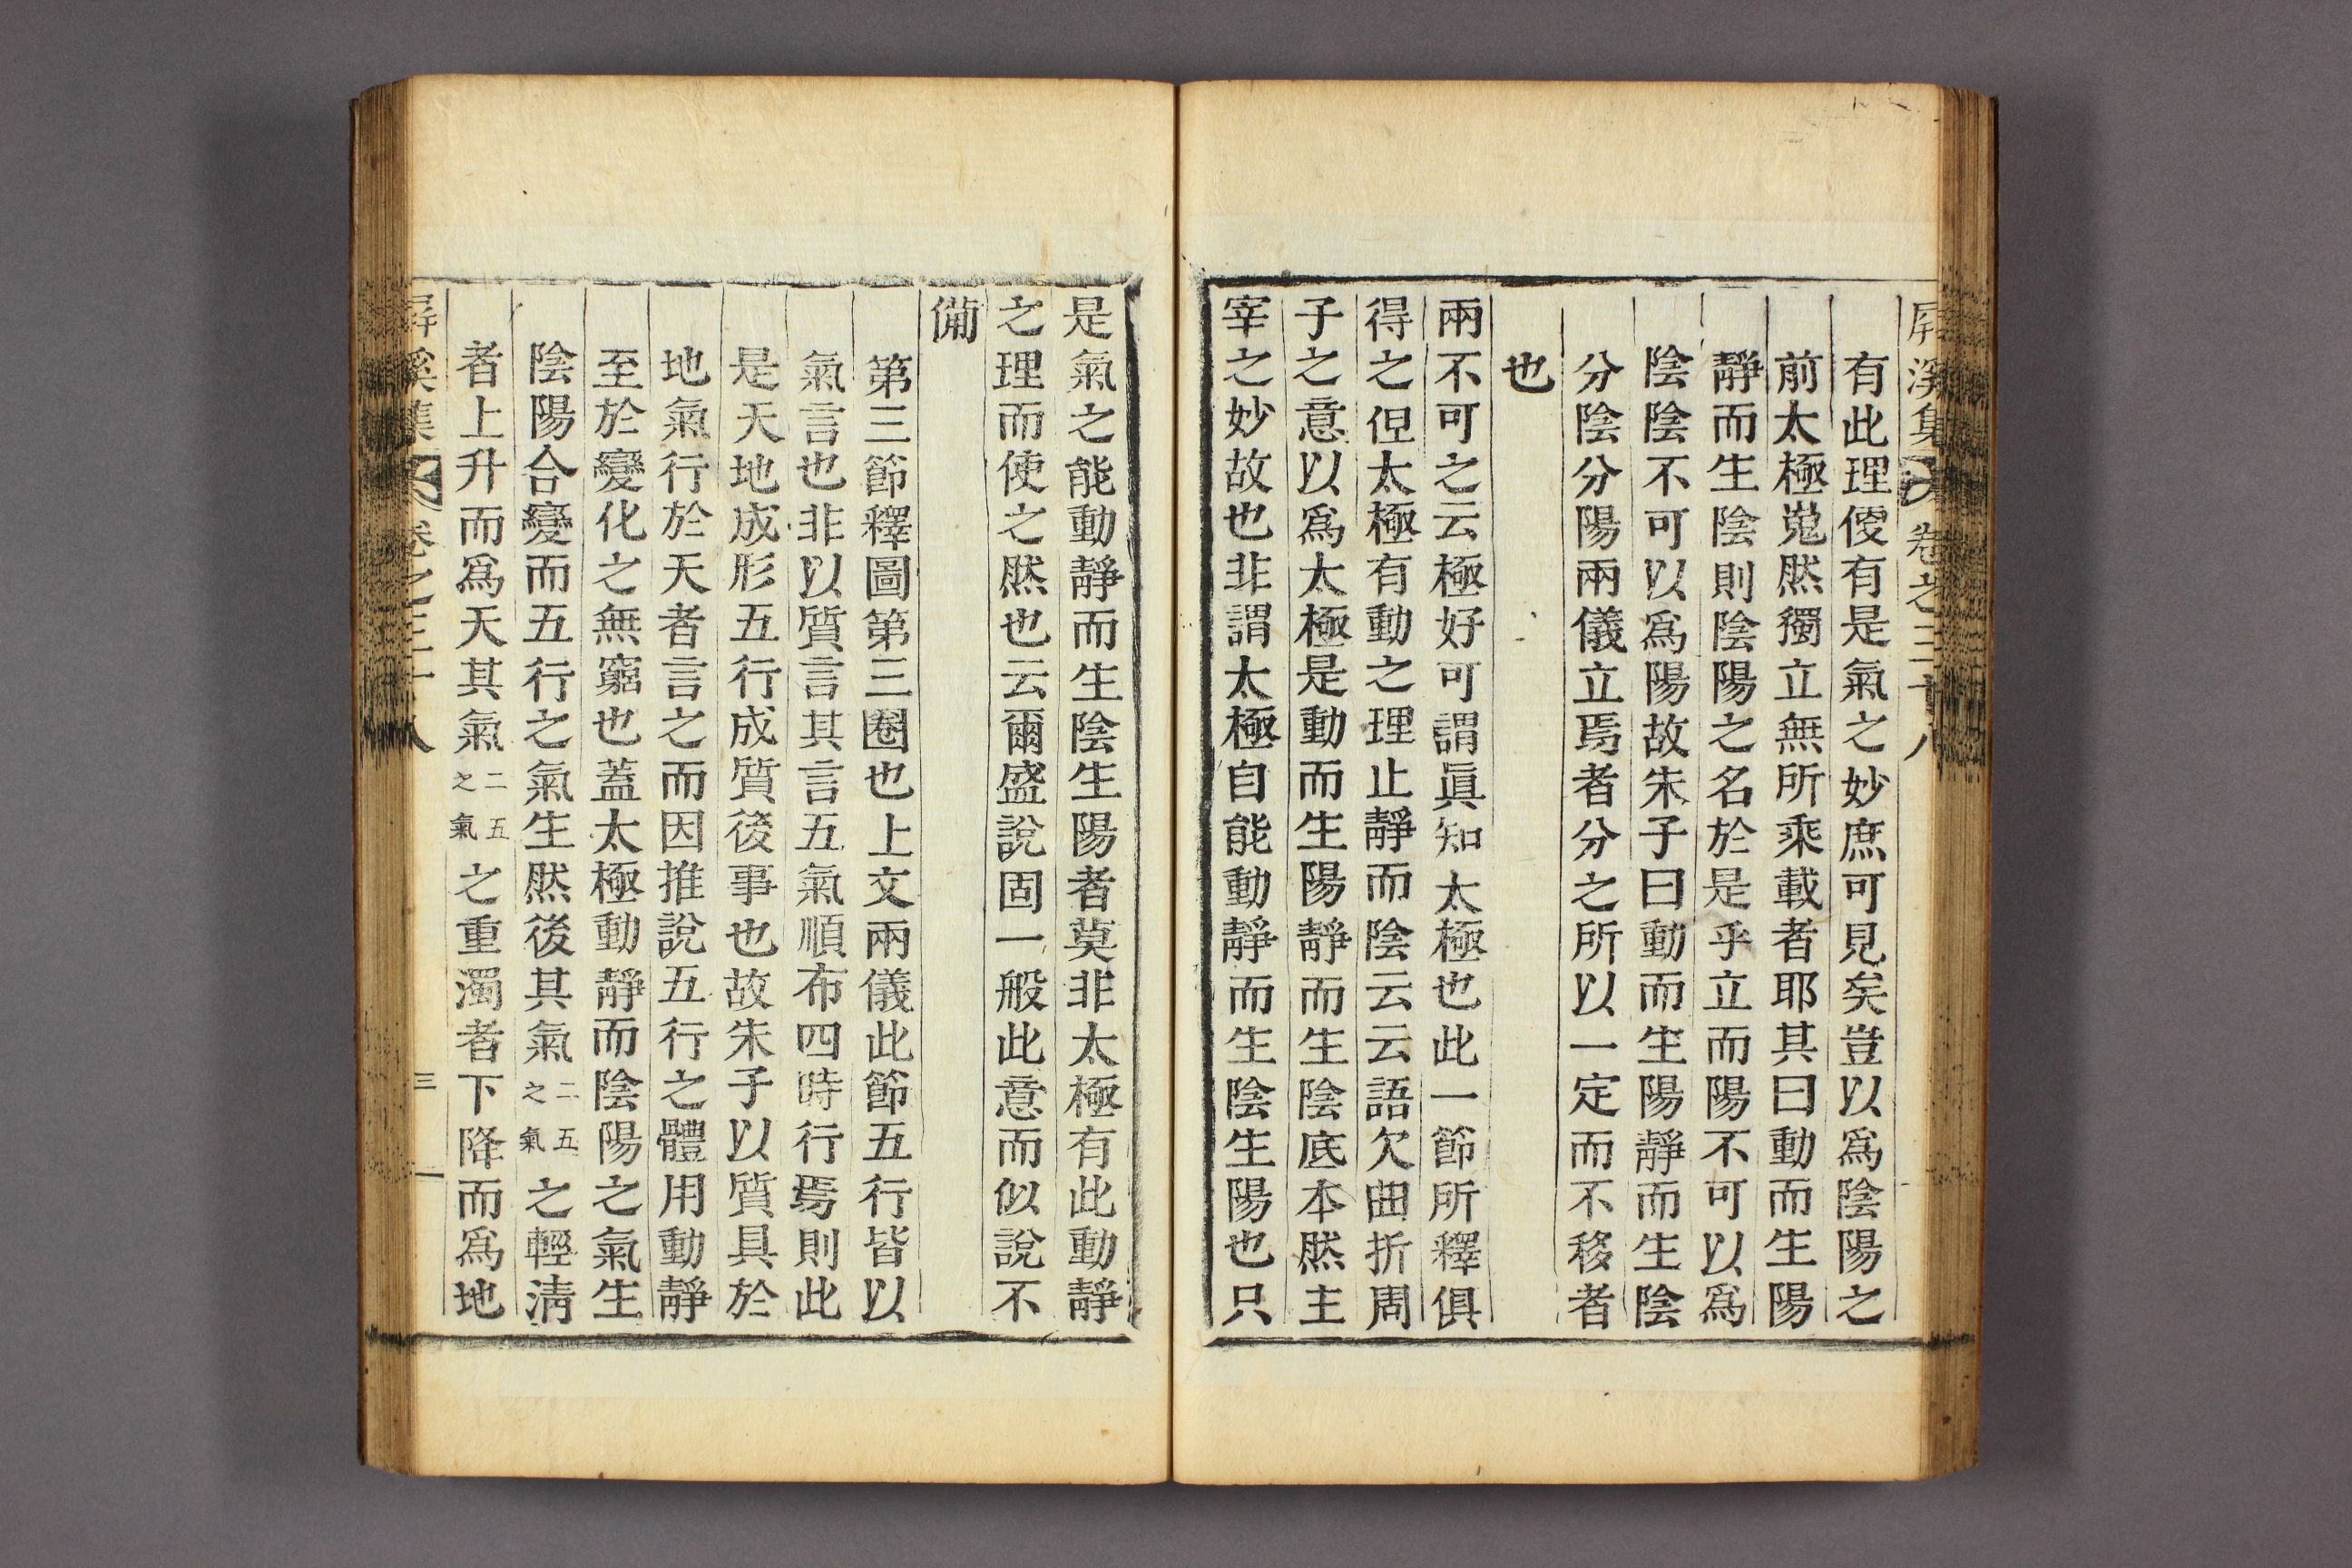 屛溪集 卷之三十八
有此理便有是氣之妙庶可見矣豈以爲陰陽之
前太極嵬然獨立無所乘載者耶其曰動而生陽
靜而生陰則陰陽之名於是乎立而陽不可以爲
陰陰不可以爲陽故朱子曰動而生陽靜而生陰
分陰分陽兩儀立焉者分之所以一定而不移者
也
兩不可之云極好可謂眞知太極也此一節所釋俱
得之但太極有動之理止靜而陰云云語欠曲折周
子之意以爲太極是動而生陽靜而生陰底本然主
宰之妙故也非謂太極自能動靜而生陰生陽也只
是氣之能動靜而生陰生陽者莫非太極有此動靜
之理而使之然也云爾盛說固一般此意而似說不
備
第三節釋圖第三圈也上文兩儀此節五行皆以
氣言也非以質言其言五氣順布四時行焉則此
是天地成形五行成質後事也故朱子以質具於
地氣行於天者言之而因推說五行之體用動靜
至於變化之無窮也蓋太極動靜而陰陽之氣生
陰陽合變而五行之氣生然後其氣二五之氣之輕淸
者上升而爲天其氣二五之氣之重濁者下降而爲地
屛溪集 卷之三十八 三